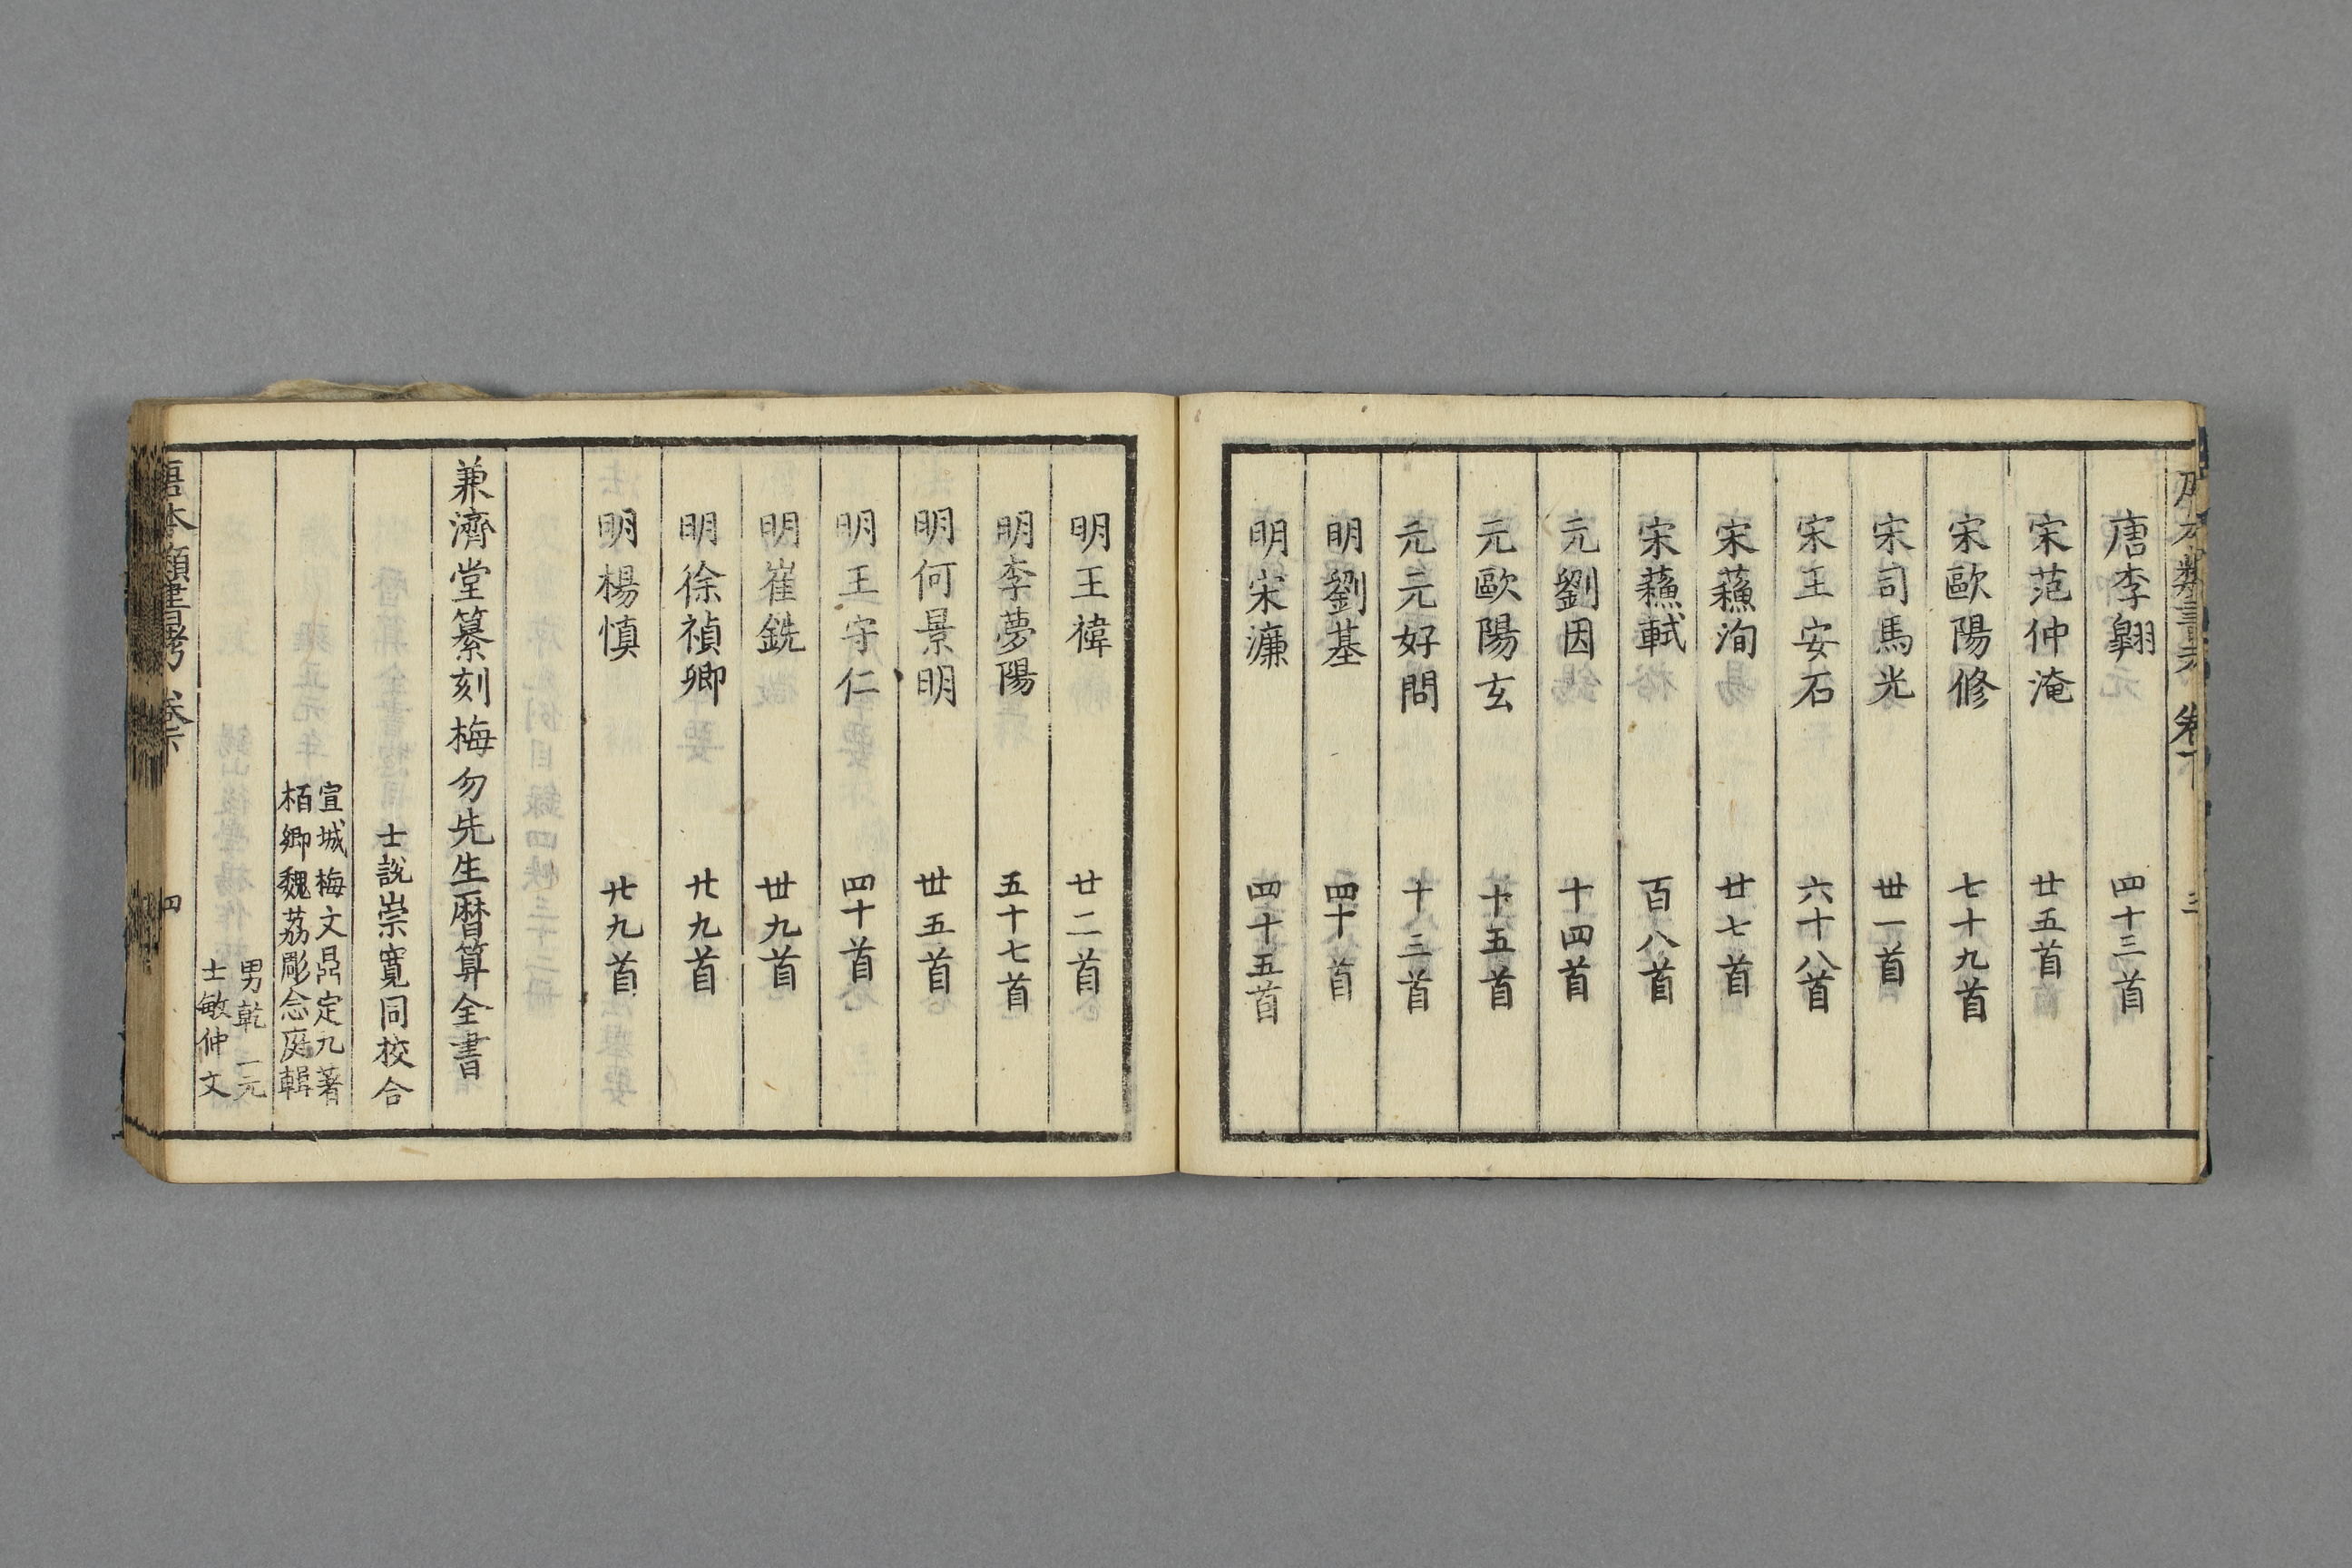 唐李翺 四十三首
宋范仲淹 廿五首
宋歐陽修 七十九首
宋司馬光 丗一首
宋王安石 六十八首
宋蘓洵 廿七首
宋蘓軾 百八首
元劉因 十四首
元歐陽玄 十五首
元元好問 十三首
明劉基 四十首
明宋濂 四十五首
明王褘 廿二首
明李夢陽 五十七首
明何景明 丗五首
明王守仁 四十首
明崔銑 丗九首
明徐禎卿 廿九首
明楊慎 廿九首
兼濟堂纂刻梅勿先生曆算全書
士說崇寬同校合
宣城梅文鼎定九著
栢鄉魏荔彫念庭輯
男乾一元
士敏仲文
四